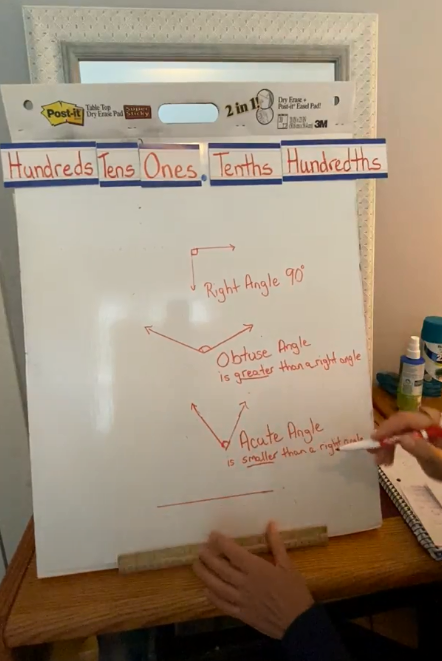 Post-it
Table Top
Dry Erase Pad
Super
Sticky
2 in 1!
Dry Erase +
Post-it® Easel Pad!
3M
Hundreds Tens Ones. Tenths Hundredths
Right Angle 90°
Obtuse Angle
is greater than a right angle
Acute Angle
is smaller than a right